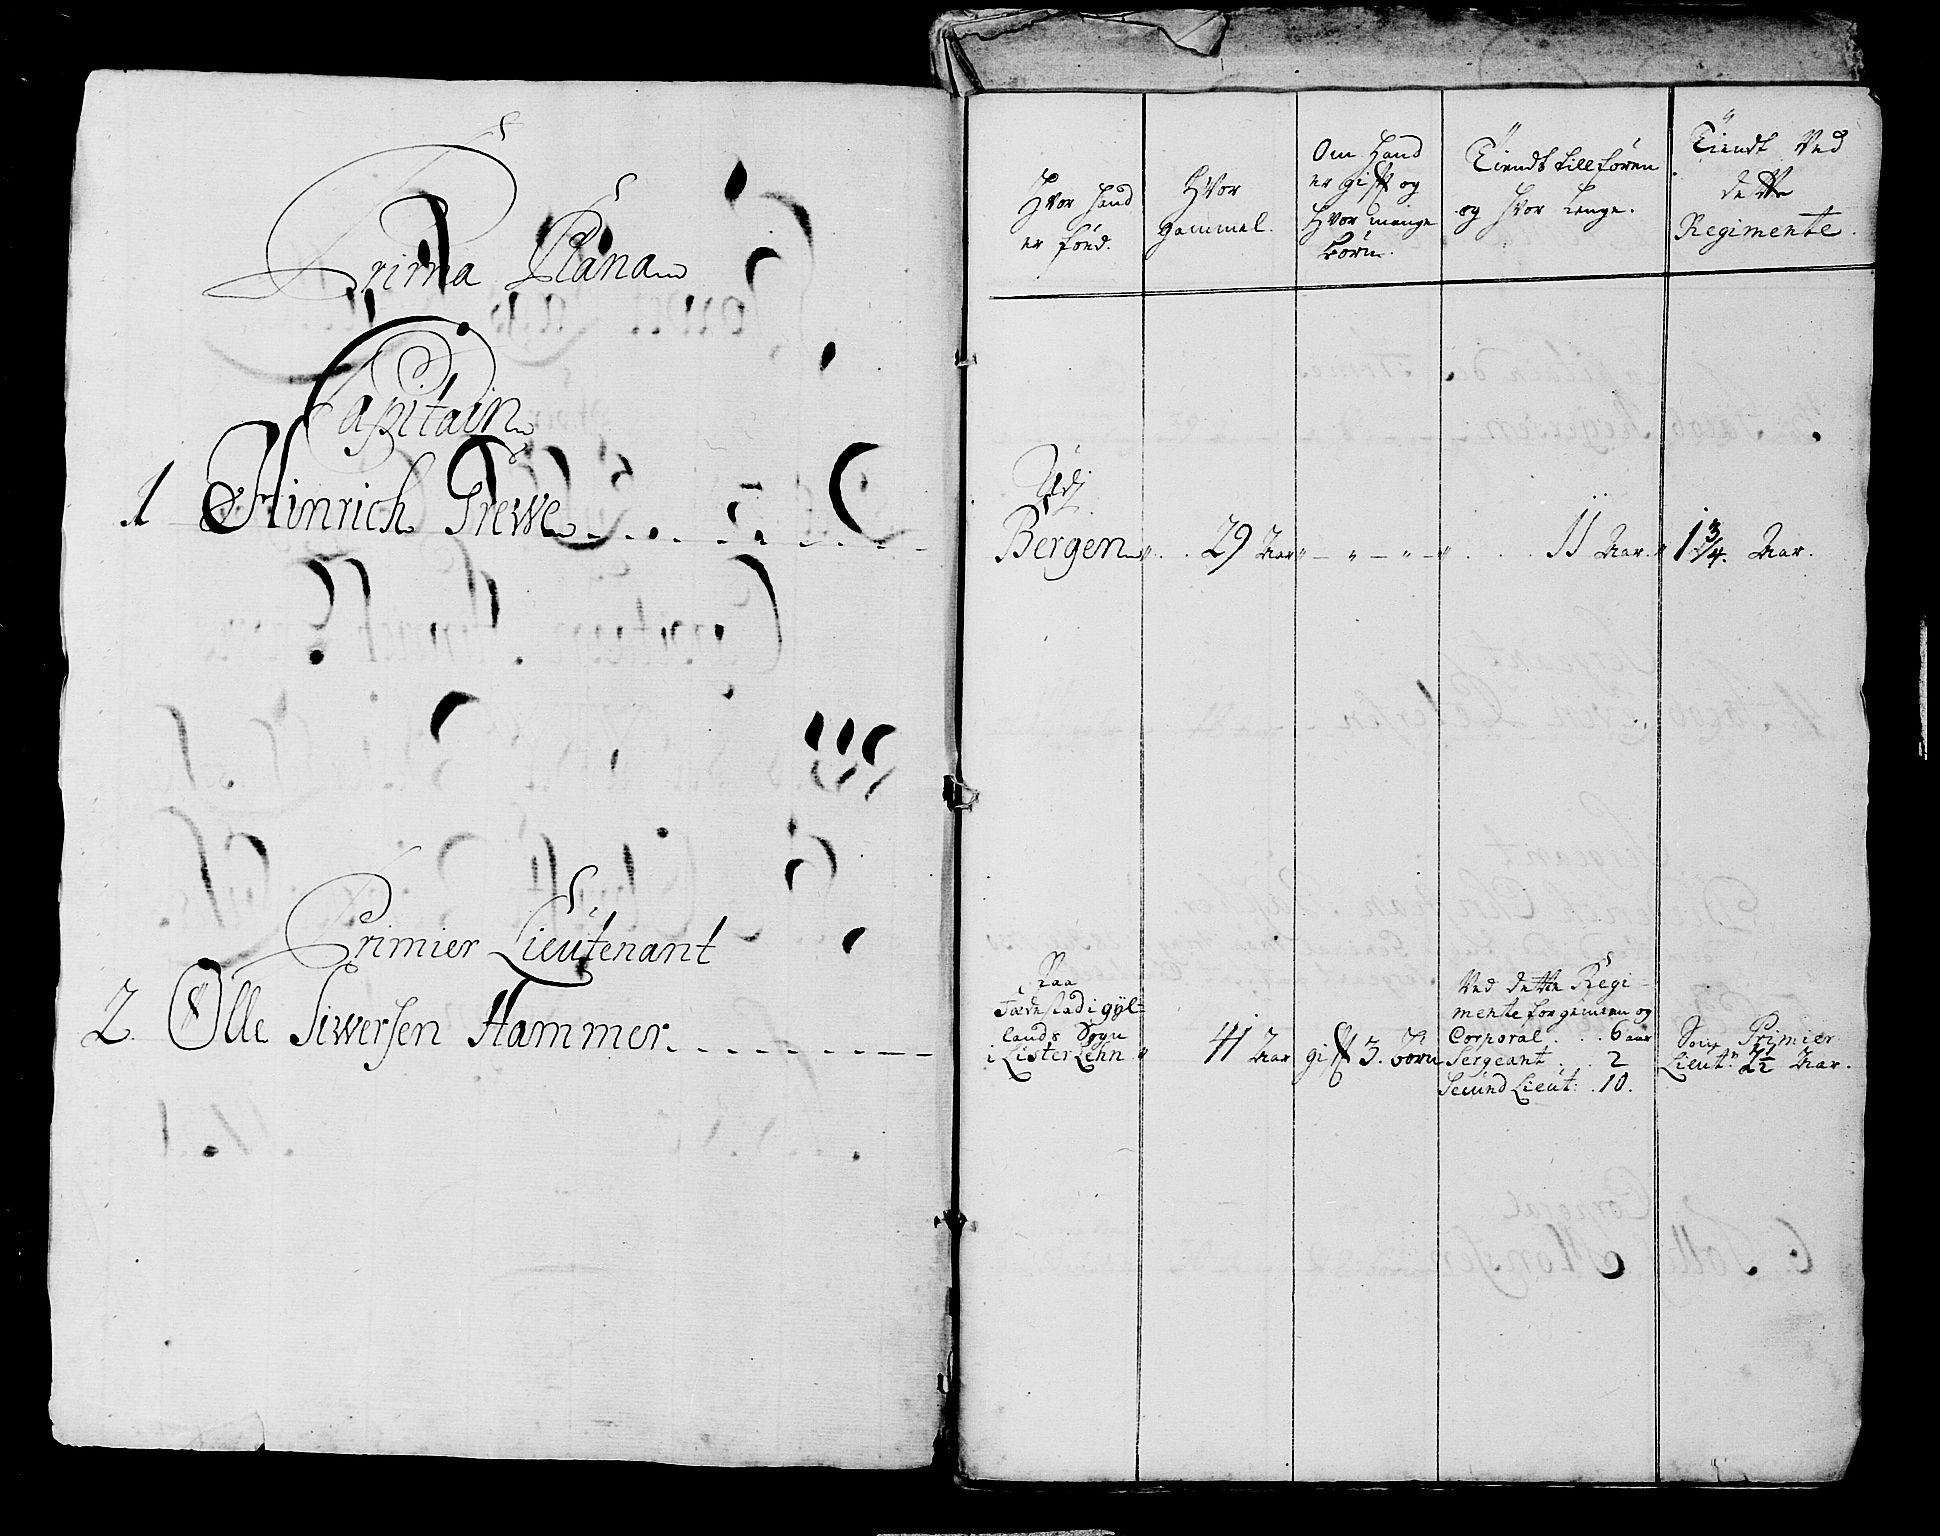 Prima Plana
Capitain
1 Hinrich Grewe
Primier Lieutenant
2. Olle Siwersen Hammer
Hvor hand
er föed.
Hvor
gammel.
Om hand
er gift og
Hvor mange
börn.
Tiendt tillforen
og hvor Lenge.
Tiendt Ved
dette
Regimente.
Udj
Bergen 29 Aar 11 Aar 1 3/4. Aar.
Paa
i gÿl-
lands Sogn
i Lister Lehn 41 Aar gift 3. börn
Ved dette Regi-
mente for gemeen og
Corporal . . . 6 aar
Sergeant . . . 2
Secund Lieut: . 10.
Som Primier
Lieut: 2 1/2 Aar.